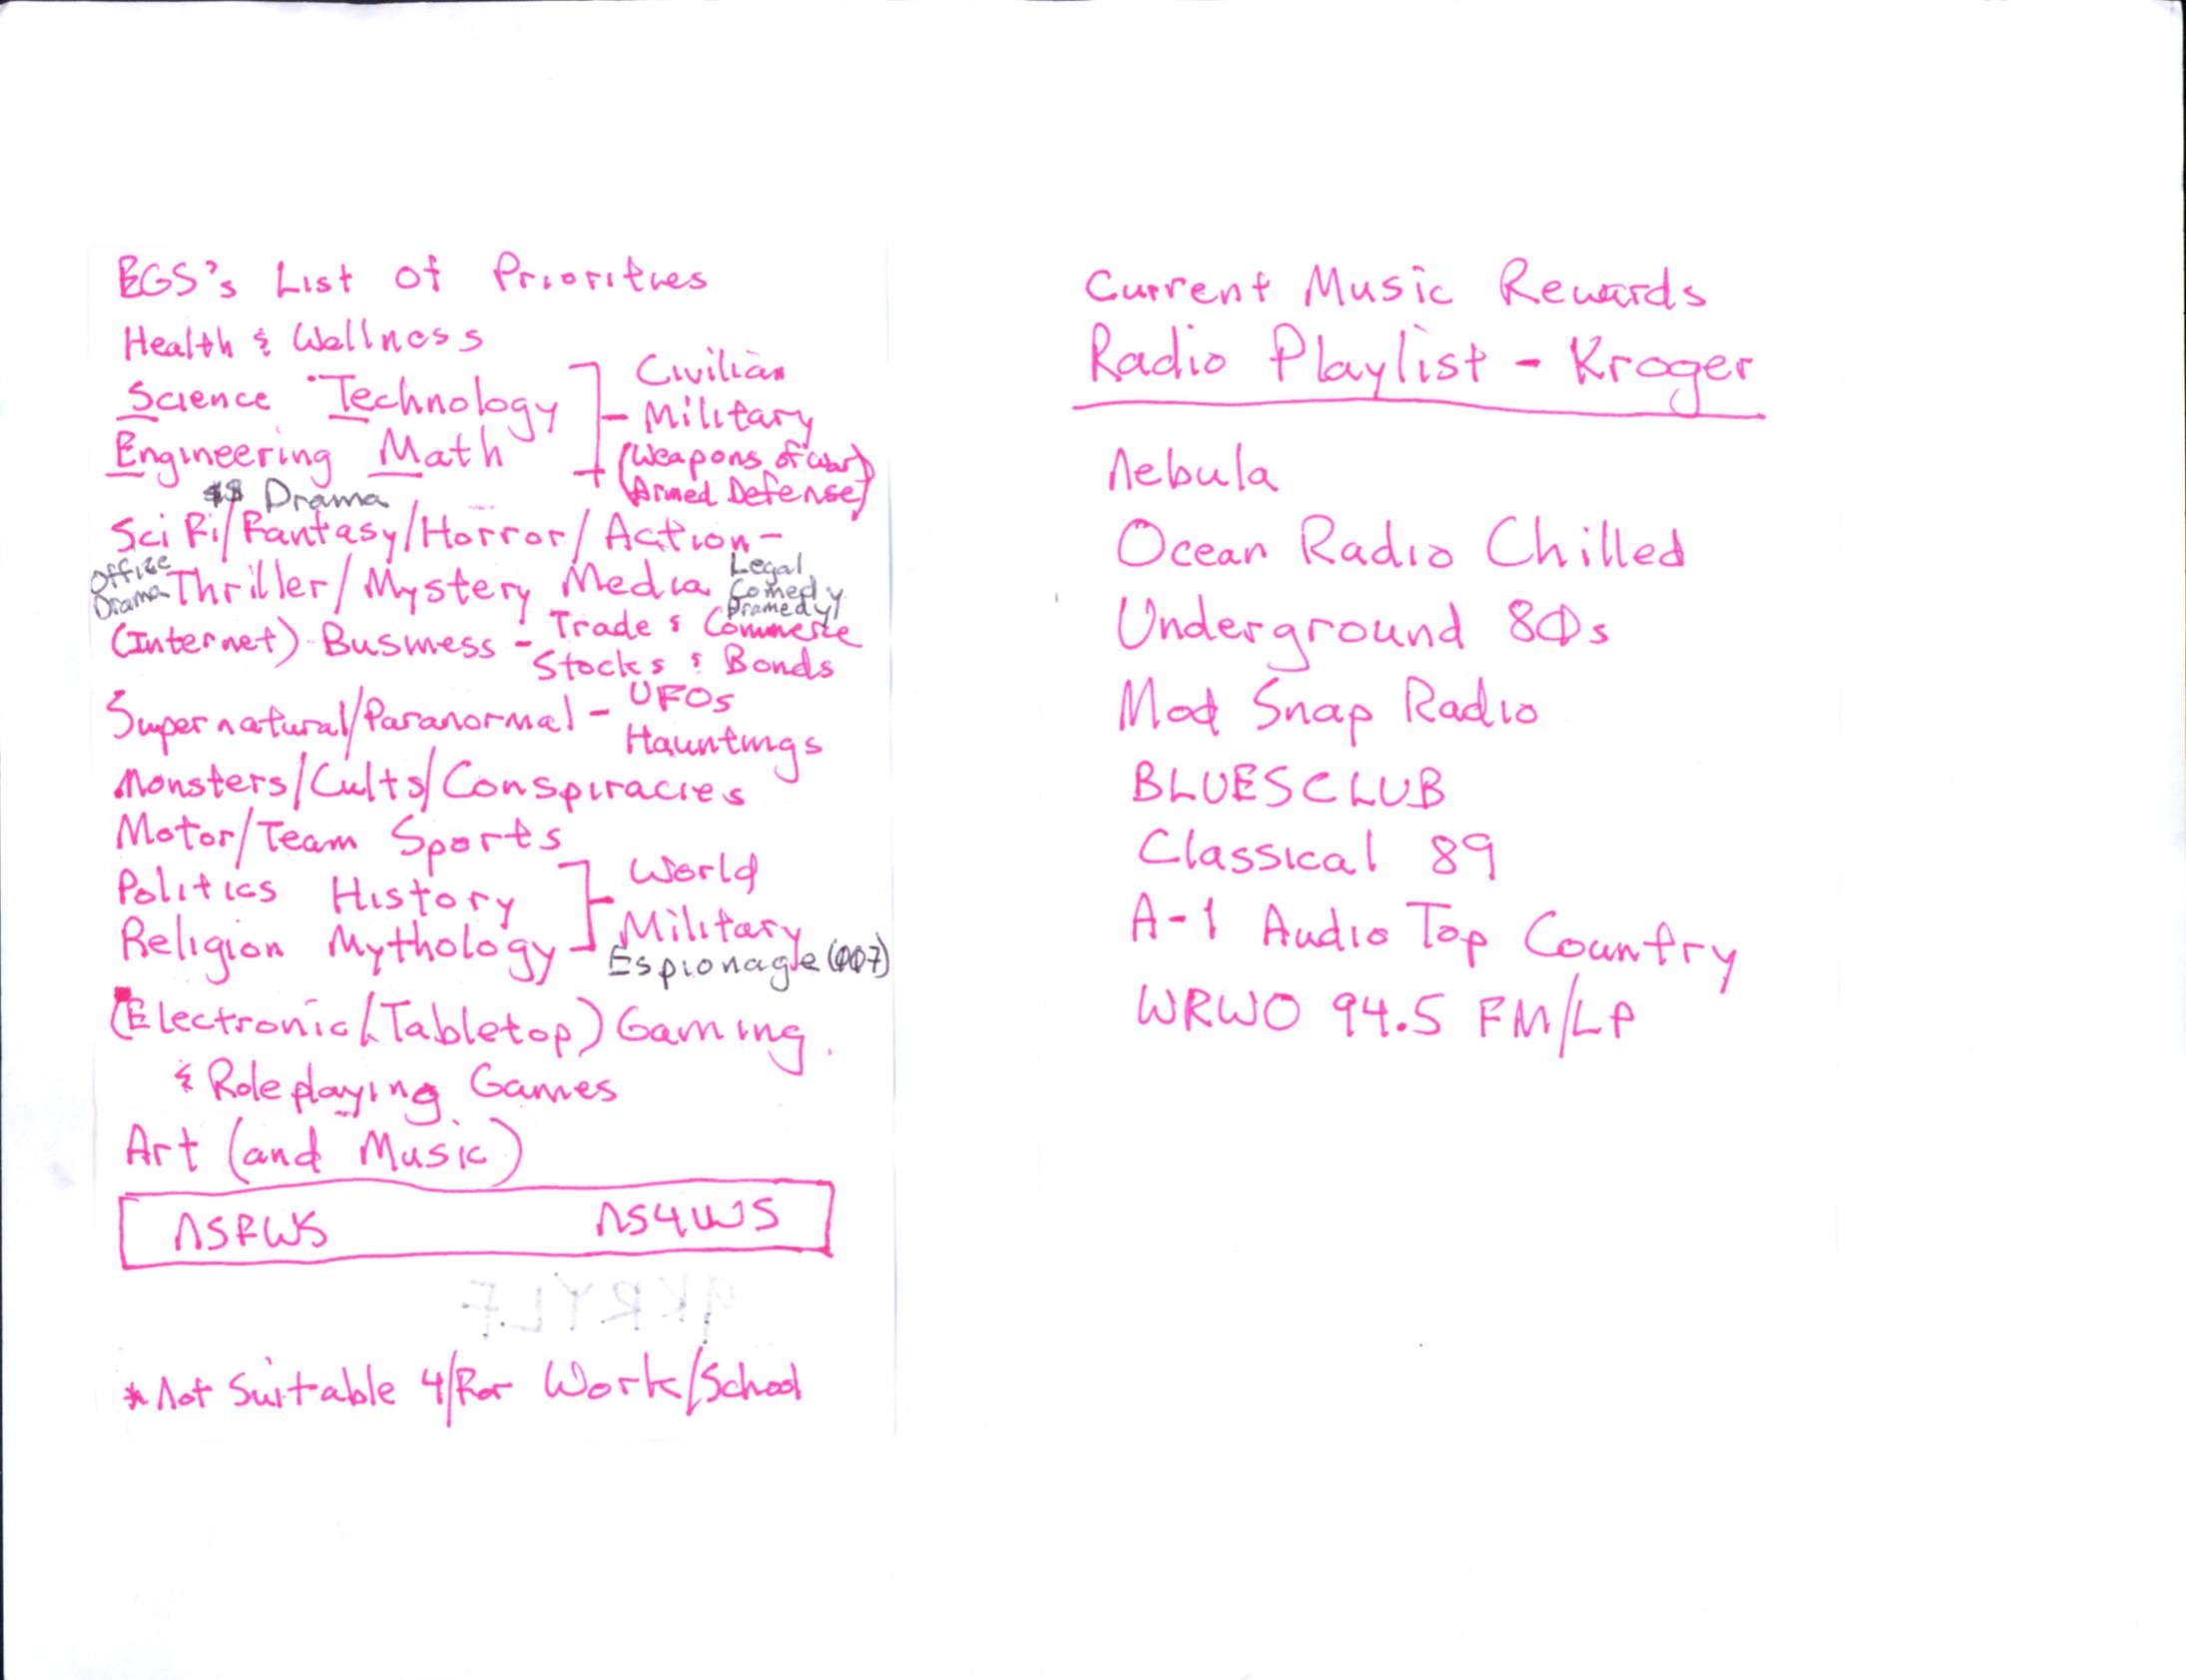 EGS's List of Priorities
Health & Wellness
Science Technology
Engineering Math
Civilian
Military
(Weapons of War)
(Armed Defense)
$$ Drama
Sci Fi/Fantasy/Horror/Action-
Office
Drama
Thriller/Mystery Media
Legal
Comedy
Dramedy/
(Internet) Business - Trade & Commerce
Stocks & Bonds
Supernatural/Paranormal - UFOs
Hauntings
Monsters/Cults/Conspiracies
Motor/Team Sports
Politics History
Religion Mythology
World
Military
Espionage (007)
(Electronic/(Tabletop) Gaming
& Roleplaying Games
Art (and Music)
NSFWS NS4WS
*Not Suitable 4/For Work/School
Current Music Rewards
Radio Playlist - Kroger
Nebula
Ocean Radio Chilled
Underground 80s
Mod Snap Radio
BLUESCLUB
Classical 89
A-1 Audio Top Country
WRWO 94.5 FM/LP